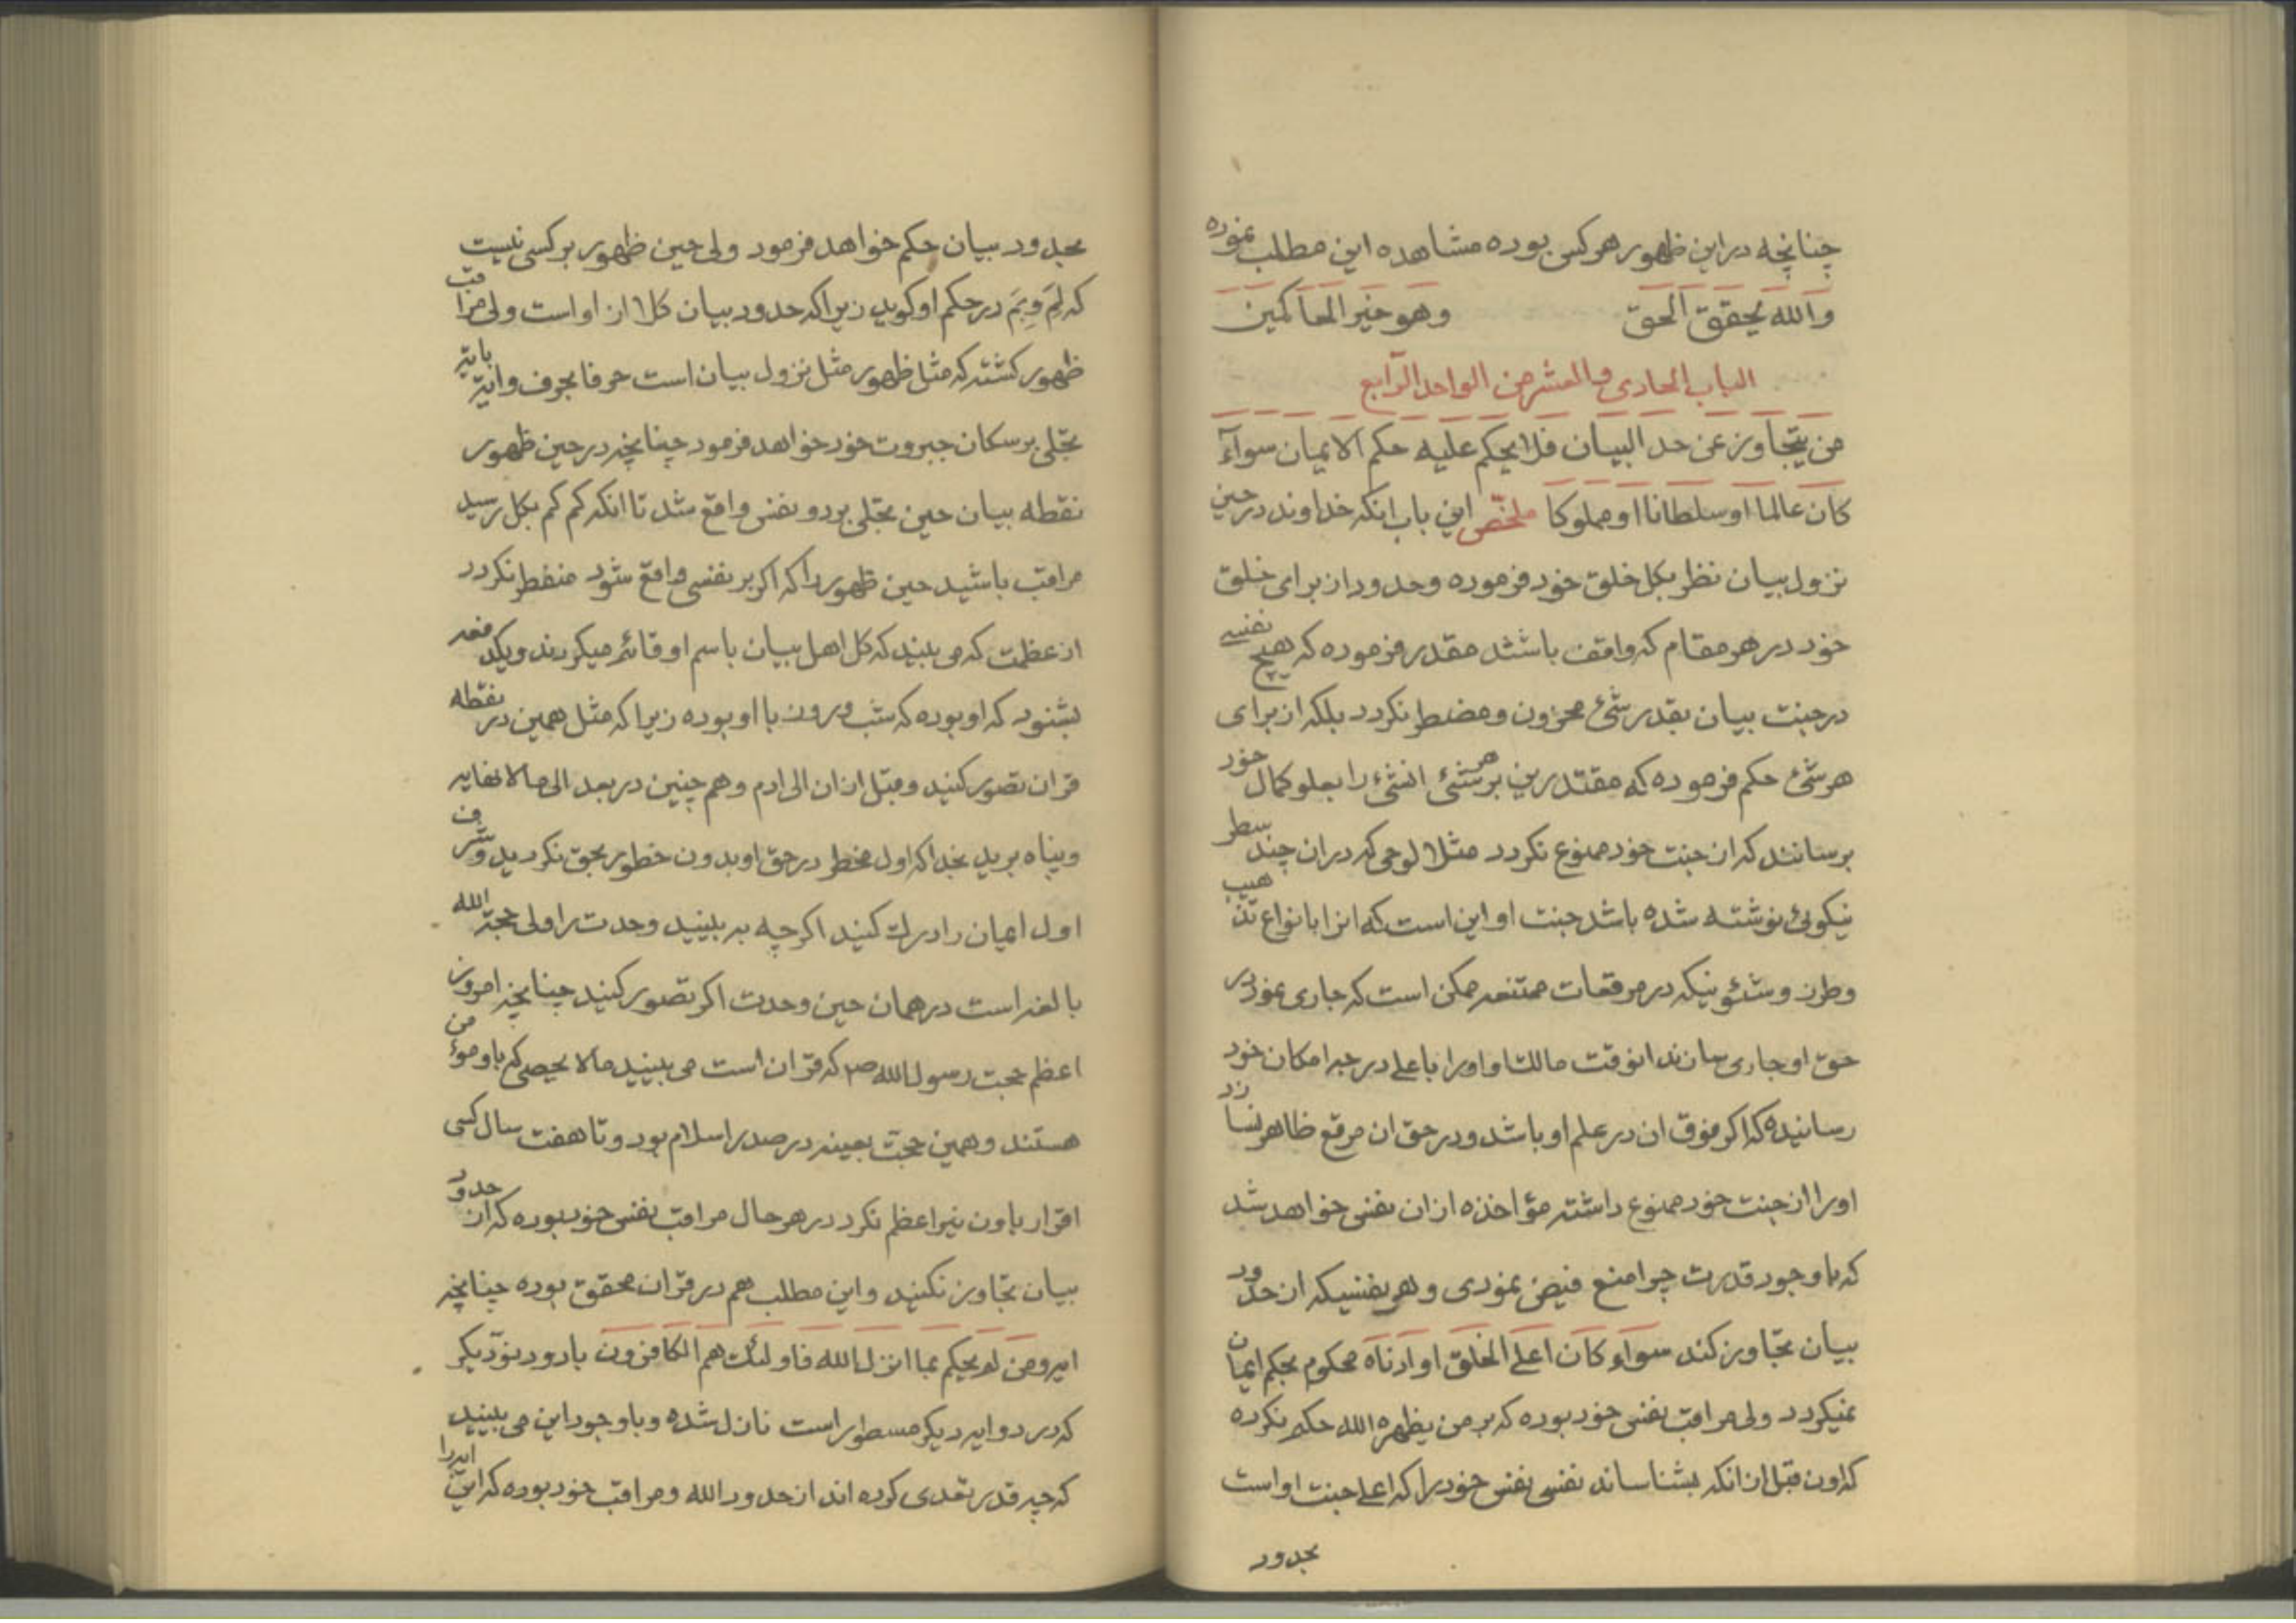 چنانچه در این ظهور هر کس بوده مشاهده این مطلب نموده
والله یحقق الحق وهو خیر الحاکمین
الباب الحادی والعشر من الواحد الرابع
من یتجاوز عن حد البیان فلا یحکم علیه حکم الایمان سوآء
کان عالما او سلطانا او مملوکا ملخّص این باب انکه خداوند در حین
نزول بیان نظر بکل خلق خود فرموده وحدود از برای خلق
خود در هر مقام که واقف باشند مقدر فرموده که هیچ نفسی
در جنت بیان بقدر شئ محزون ومضطر نکردد بلکه از برای
هر شئ حکم فرموده که مقتدرین بر هر شئ انشئ را بعلو کمال خود
برسانند که از جنت خود ممنوع نکردد مثلا لوحی که در ان چند سطر
نیکوئی نوشته شده باشد جنت او این است که انرا بانواع تذهیب
وطرز وشئونیکه در مرقعات ممتنعه ممکن است که جاری نمود در
حق او جاری سازند انوقت مالک او اورا باعلی درجه امکان خود
رسانیده که اکر فوق ان در علم او باشد ودر حق ان مرقع ظاهر نسازد
اورا از جنت خود ممنوع داشته مؤاخذه از ان نفس خواهد شد
که باوجود قدرت چرا منع فیض نمودی وهر نفسیکه از حدود
بیان تجاوز کند سوآء کان اعلی الخلق او ادناه محکوم بحکم ایمان
نمیکردد ولی مراقب نفس خود بوده که بر من یظهره الله حکم نکرده
که اون قبل از انکه بشناساند نفسی نفس خود را که اعلی جنت او است
بحدود
بحدود بیان حکم خواهد فرمود ولی حین ظهور بر کسی نیست
که لِمَ وبِمَ در حکم او کوید زیرا که حدود بیان کلا از او است ولی مراقب
ظهور کشته که مثل ظهور مثل نزول بیان است حرفا بحرف وایة بایة
تجلی بر سکان جبروت خود خواهد فرمود چنانچه در حین ظهور
نقطه بیان حین تجلی بر دو نفس واقع شد تا انکه کم کم بکل رسید
مراقب باشید حین ظهور را که اکر بر نفسی واقع شود منفطر نکردد
از عظمت که می بیند که کل اهل بیان باسم او قائم میکردند ویکدفعه
بشنود که او بوده که شب وروز با او بوده زیرا که مثل همین در نقطه
قران تصور کنید وقبل از ان الی ادم وهم چنین در بعد الی مالا نهایه
وپناه برید بخدا که اول مخطر در حق او بدون خطور بحق نکردید وشرف
اول ایمان را درک کنید اکرچه بر بینید وحدت را ولی حجة الله
بالغه است در همان حین وحدت اکر تصور کنید چنانچه امروز
اعظم حجت رسول الله ص که قران است می بینید مالا یحصی که باو مؤمن
هستند وهمین حجت بعینه در صدر اسلام بود وتا هفت سال کسی
اقرار باون نیر اعظم نکرد در هر حال مراقب نفس خود بوده که از حدود
بیان تجاوز نکنید واین مطلب هم در قران محقق بوده چنانچه
ایه ومن لم یحکم بما انزل الله فاولئک هم الکافرون با دو دیکر
که در دو ایه دیکر مسطور است نازل شده وباوجود این می بینید
که چه قدر تعدی کرده اند از حدود الله ومراقب خود بوده که این ایه را